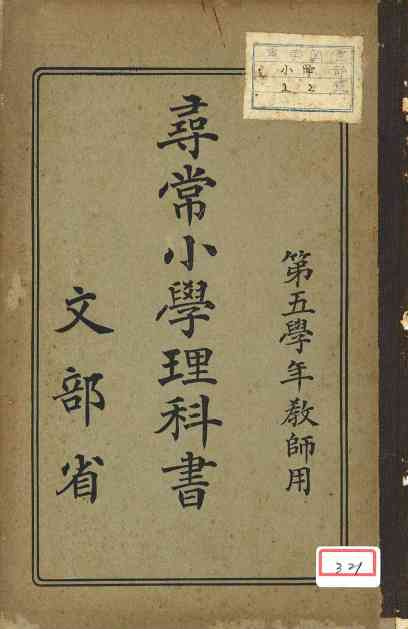 第五學年教師用
尋常小學理科書
文部省
小學
321